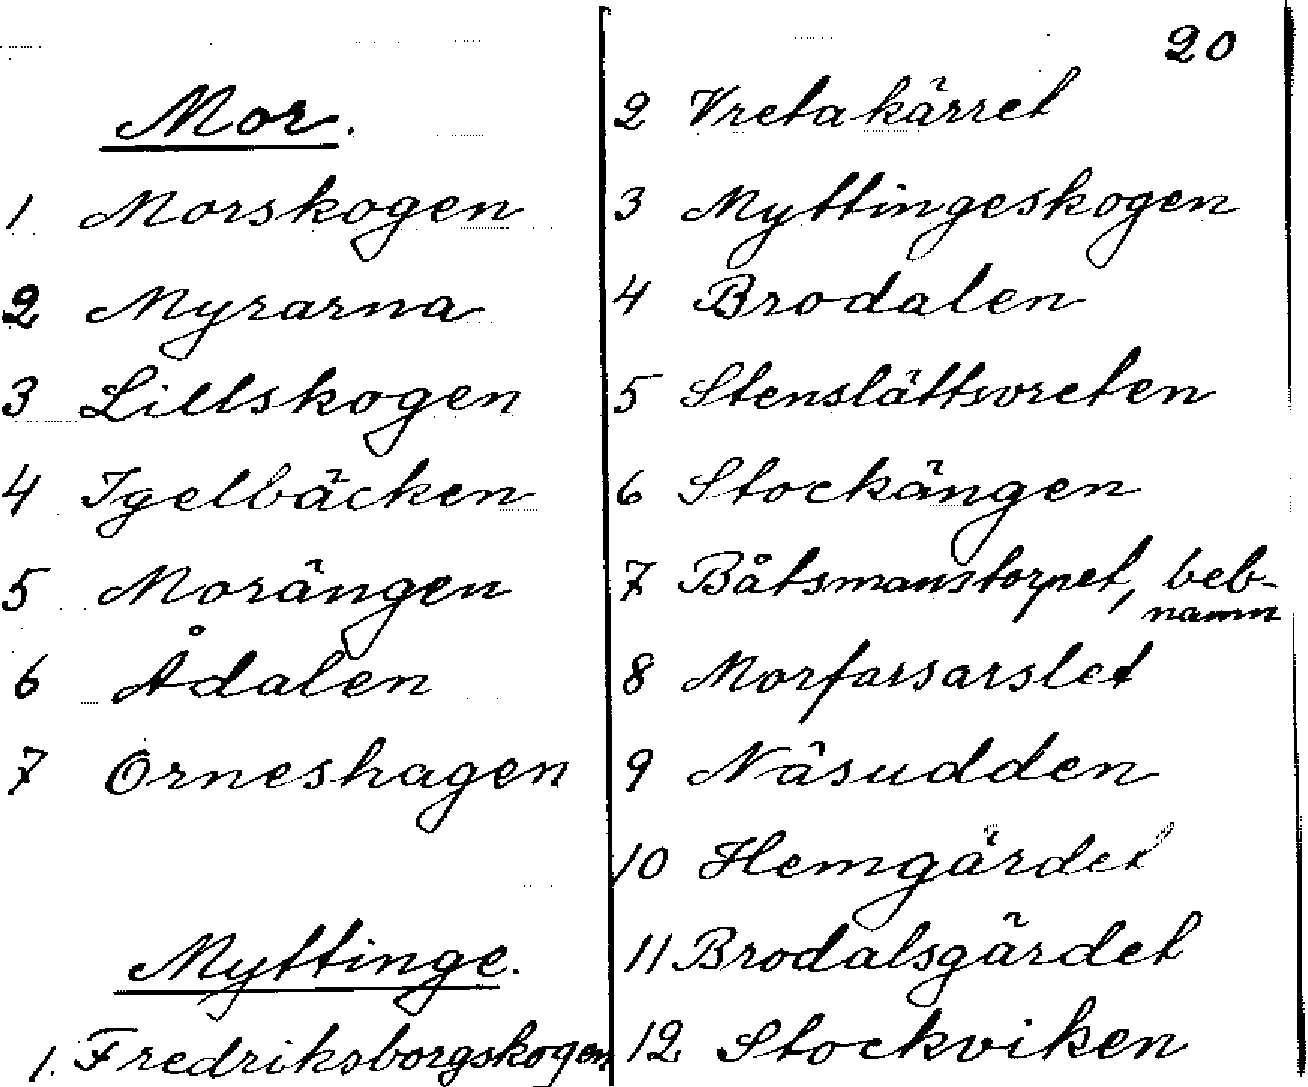 Mor.
1 Morskogen
2 Myrarna
3 Lillskogen
4 Igelbäcken
5 Morängen
6 Ådalen
7 Orneshagen
Myttinge.
1. Fredriksborgskogen
20
2 Vretakärret
3 Myttingeskogen
4 Brodalen
5 Stenslättsvreten
6 Stockängen
7 Båtsmanstorpet, beb-
namn
8 Morfarsarslet
9 Näsudden
10 Hemgärdet
11 Brodalsgärdet
12 Stockviken